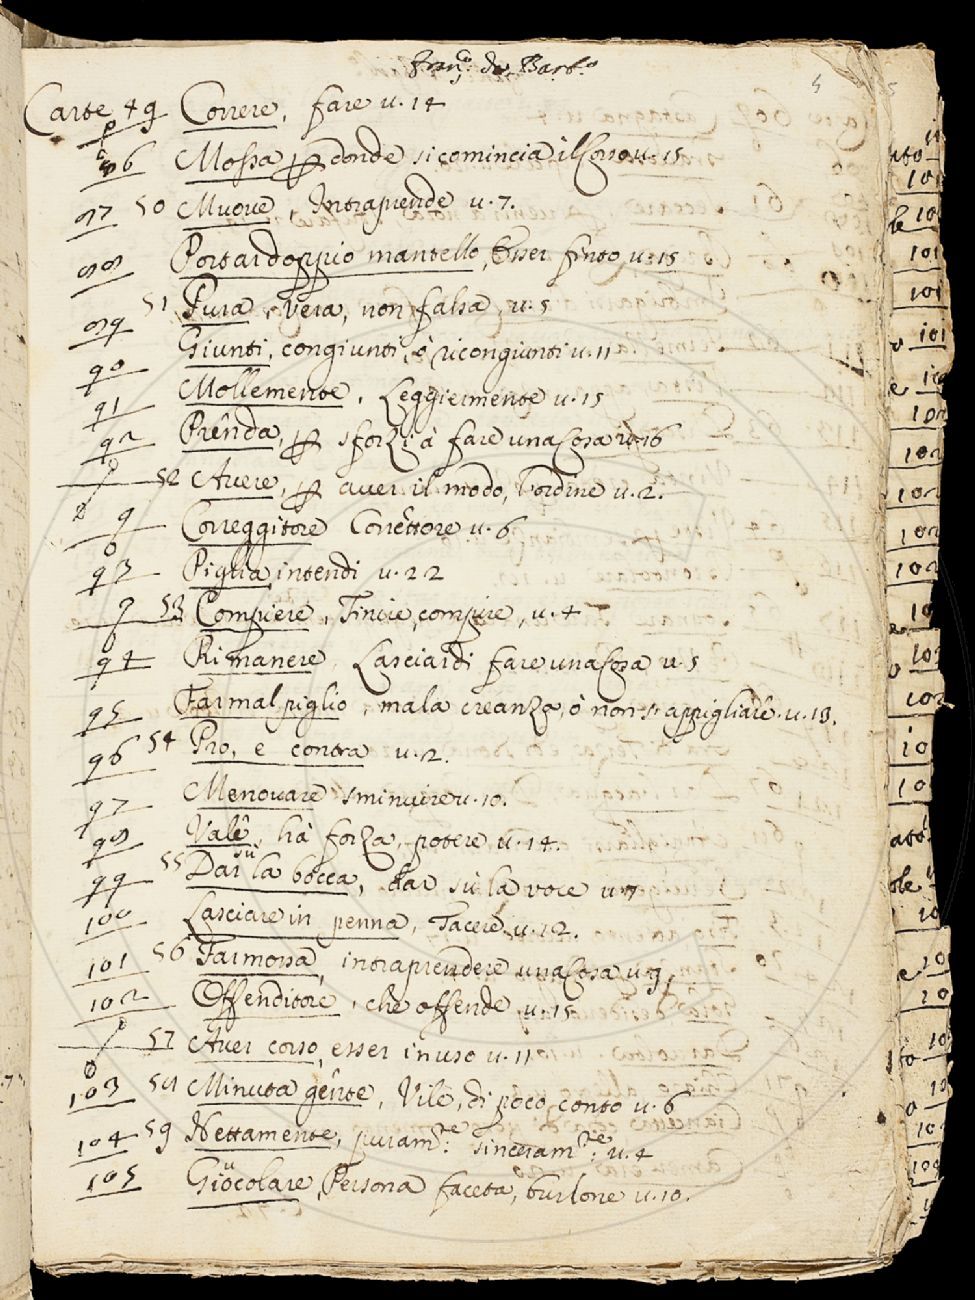 Fran.º da Barb.º
5
Carte 49 Correre, fare v. 14
86 Mossa donde si comincia il Corso v. 15
87 50 Muove, Intraprende v. 7.
88 Portar doppio mantello, Esser finto v. 15
89 51 Pura, vera, non falsa, v. 5
90 Giunti, congiunti, ò ricongiunti v. 11
91 Mollemente, Leggiermente v. 15
92 Prenda, sforzi à fare una Cosa v. 16
52 Avere, aver il modo, l'ordine v. 2.
Correggitore Correttore v. 6
93 Piglia intendi v. 22
53 Compiere, Finire, compire, v. 4
94 Rimanere, Lasciar di fare una Cosa v. 5
95 Far mal piglio, mala creanza, ò non s'appigliare. v. 13.
96 54 Pro, e contra v. 2.
97 Menovare sminuire v. 10.
98 Vale, hà forza, potere v. 14.
99 55 Dar sù la bocca, dar sù la voce v. 7
100 Lasciare in penna, Tacere v. 12.
101 56 Far mossa, intraprendere una Cosa v. 9,
102 Offenditore, che offende v. 15
57 Aver corso, esser in uso v. 11
103 58 Minuta gente, Vile, di poco conto v. 6
104 59 Nettamente, puram.te: sinceram.te: v. 4
105 Giocolare, Persona faceta, burlone v. 10.